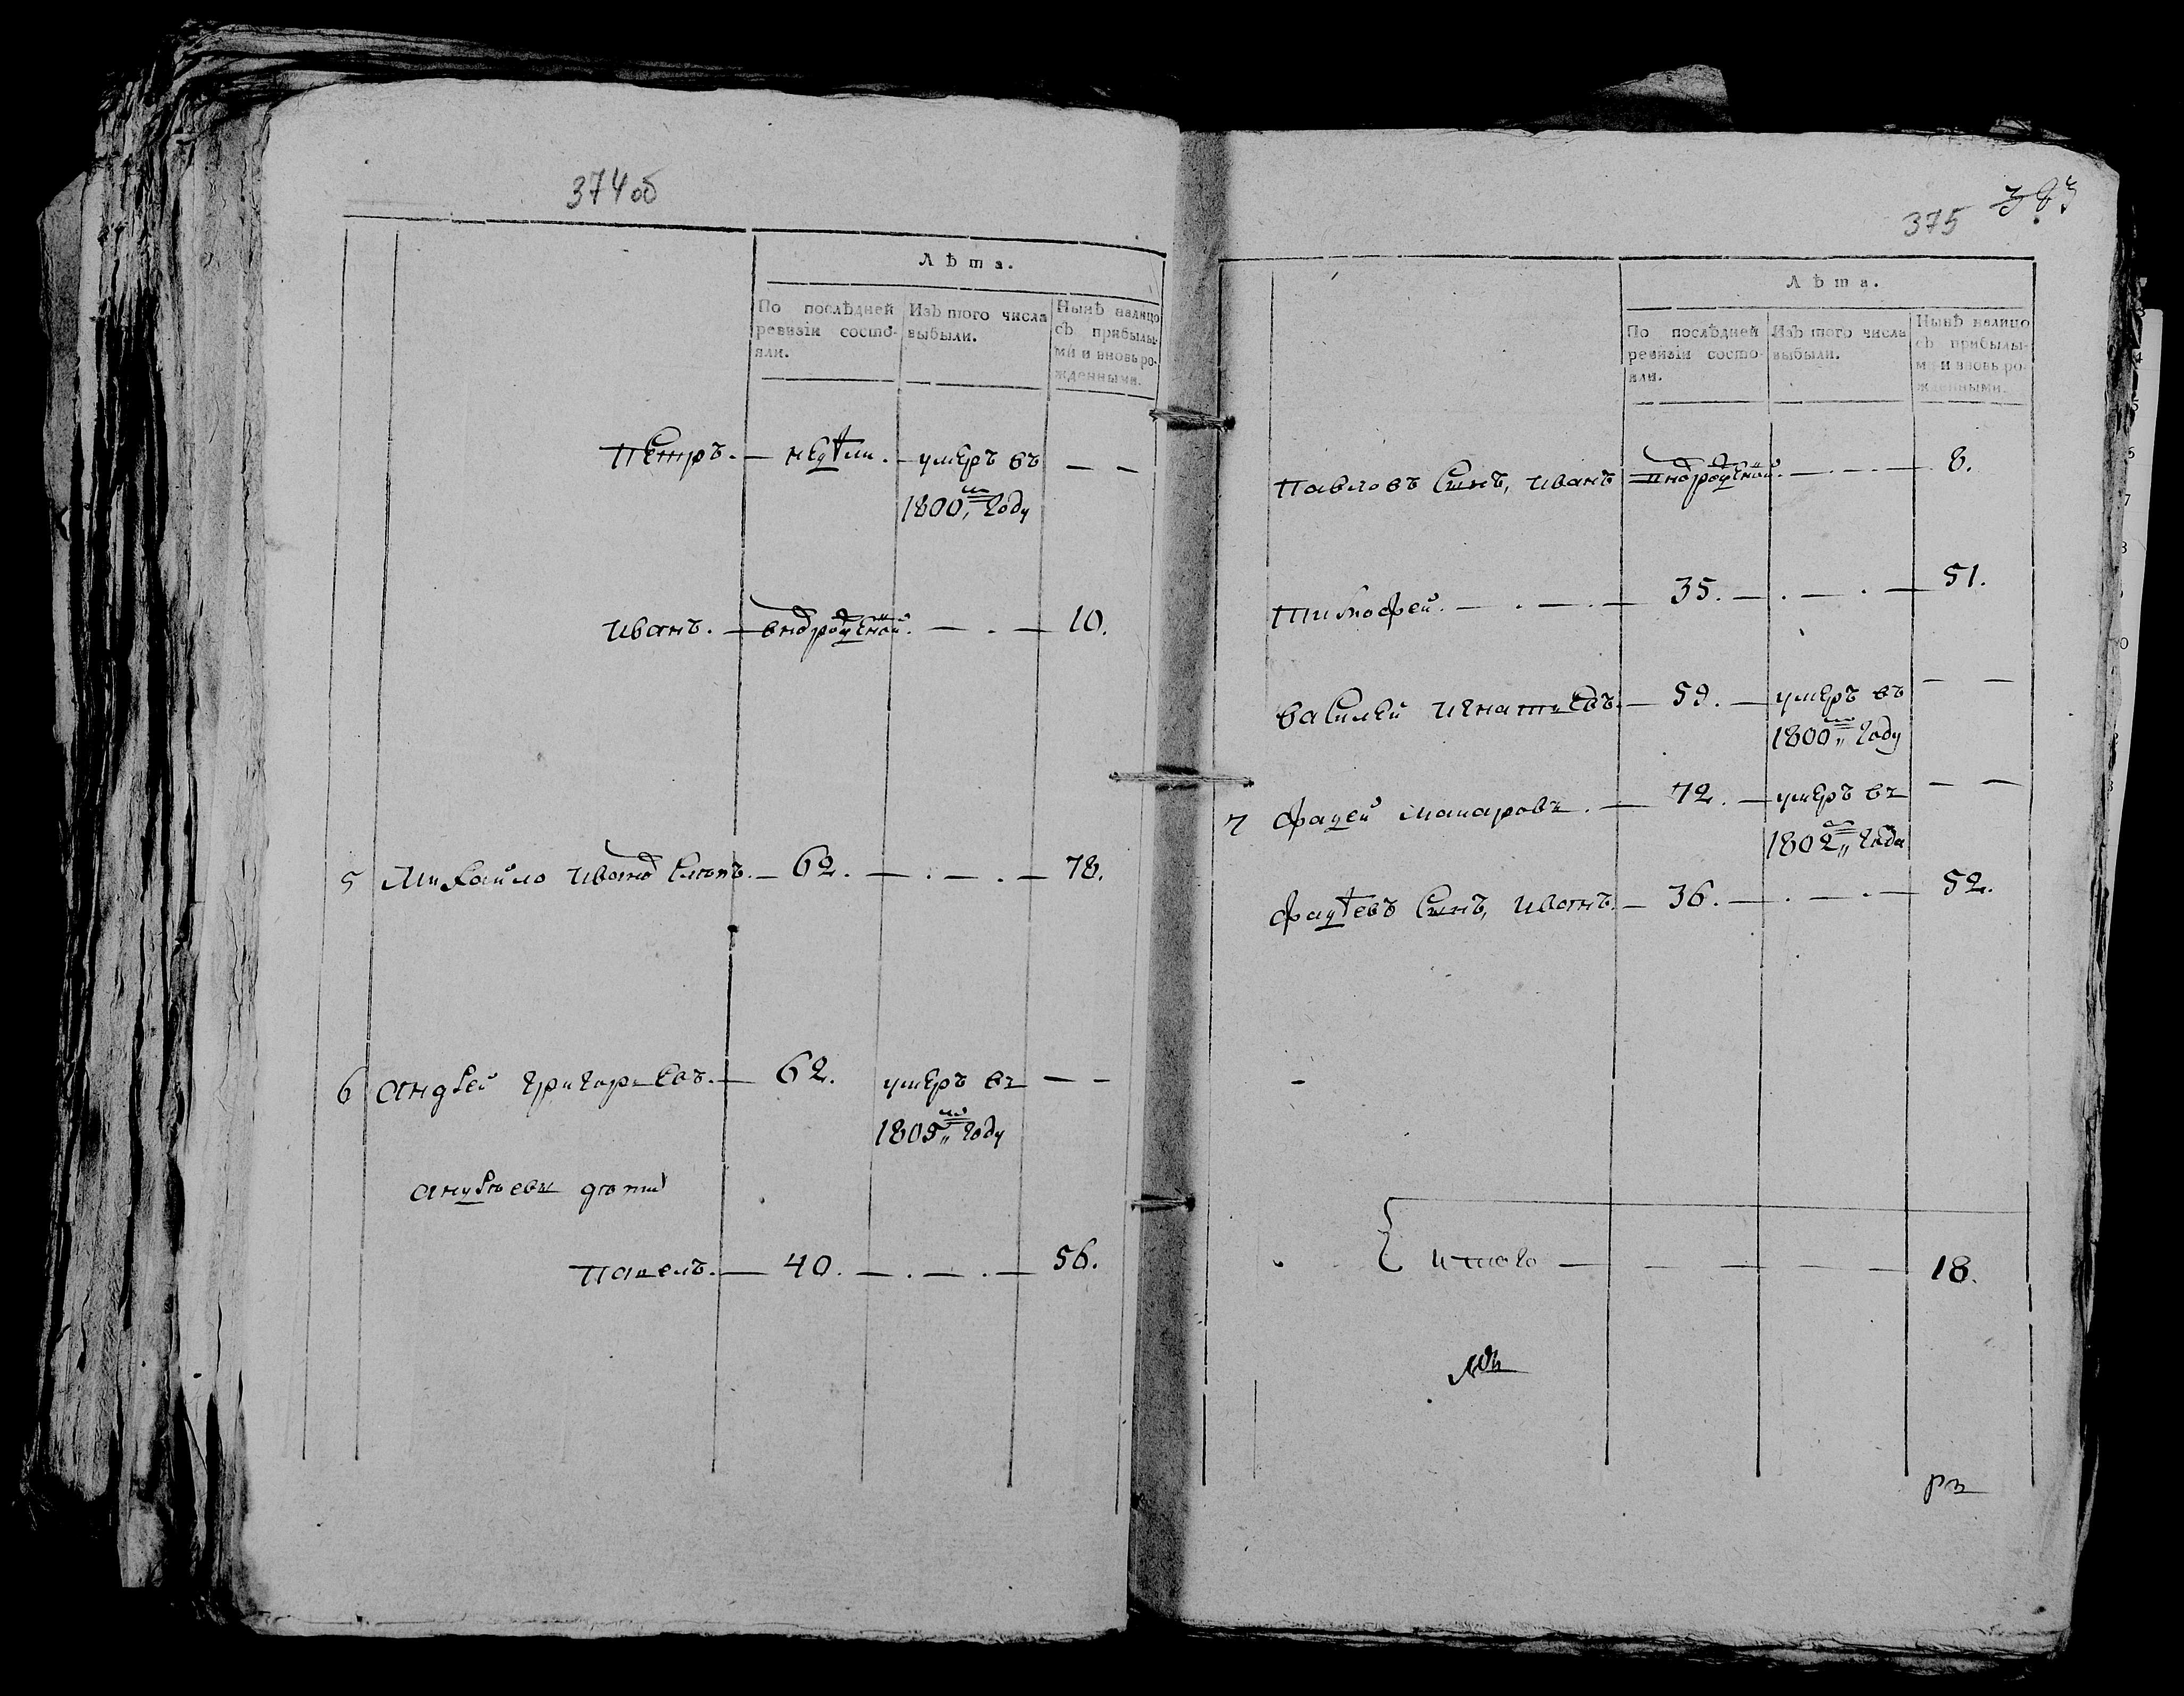 374 об
Лѣта.
По послѣдней ревизіи состояли.
Изъ того числа выбыли.
Нынѣ налицо съ прибылыми и вновь рожденными.
Петръ. — недѣли. — умеръ въ — —
1800,, году
Иванъ. — вновьрожденной. — . — 10.
5 Михайло Ивановъ сынъ. — 62. — . — . — 78.
6 Андрей Григорьевъ. — 62. умеръ въ — —
1809,, году
Андреевы дѣти
Павелъ. — 40. — . — . — 56.
375 383
Лѣта.
По послѣдней ревизіи состояли.
Изъ того числа выбыли.
Нынѣ налицо съ прибылыми и вновь рожденными.
Павловъ сынъ, Иванъ — . — . — 8.
Тимофей. — . — . — 35. — . — . — 51.
Василей Игнатьевъ. — 59. — умеръ въ — —
1800,, году
7 Фадей Макаровъ. — 72. — умеръ въ — —
1802,, года
Фадѣевъ сынъ, Иванъ. — 36. — . — . — 52.
Итого — — — — — 18.